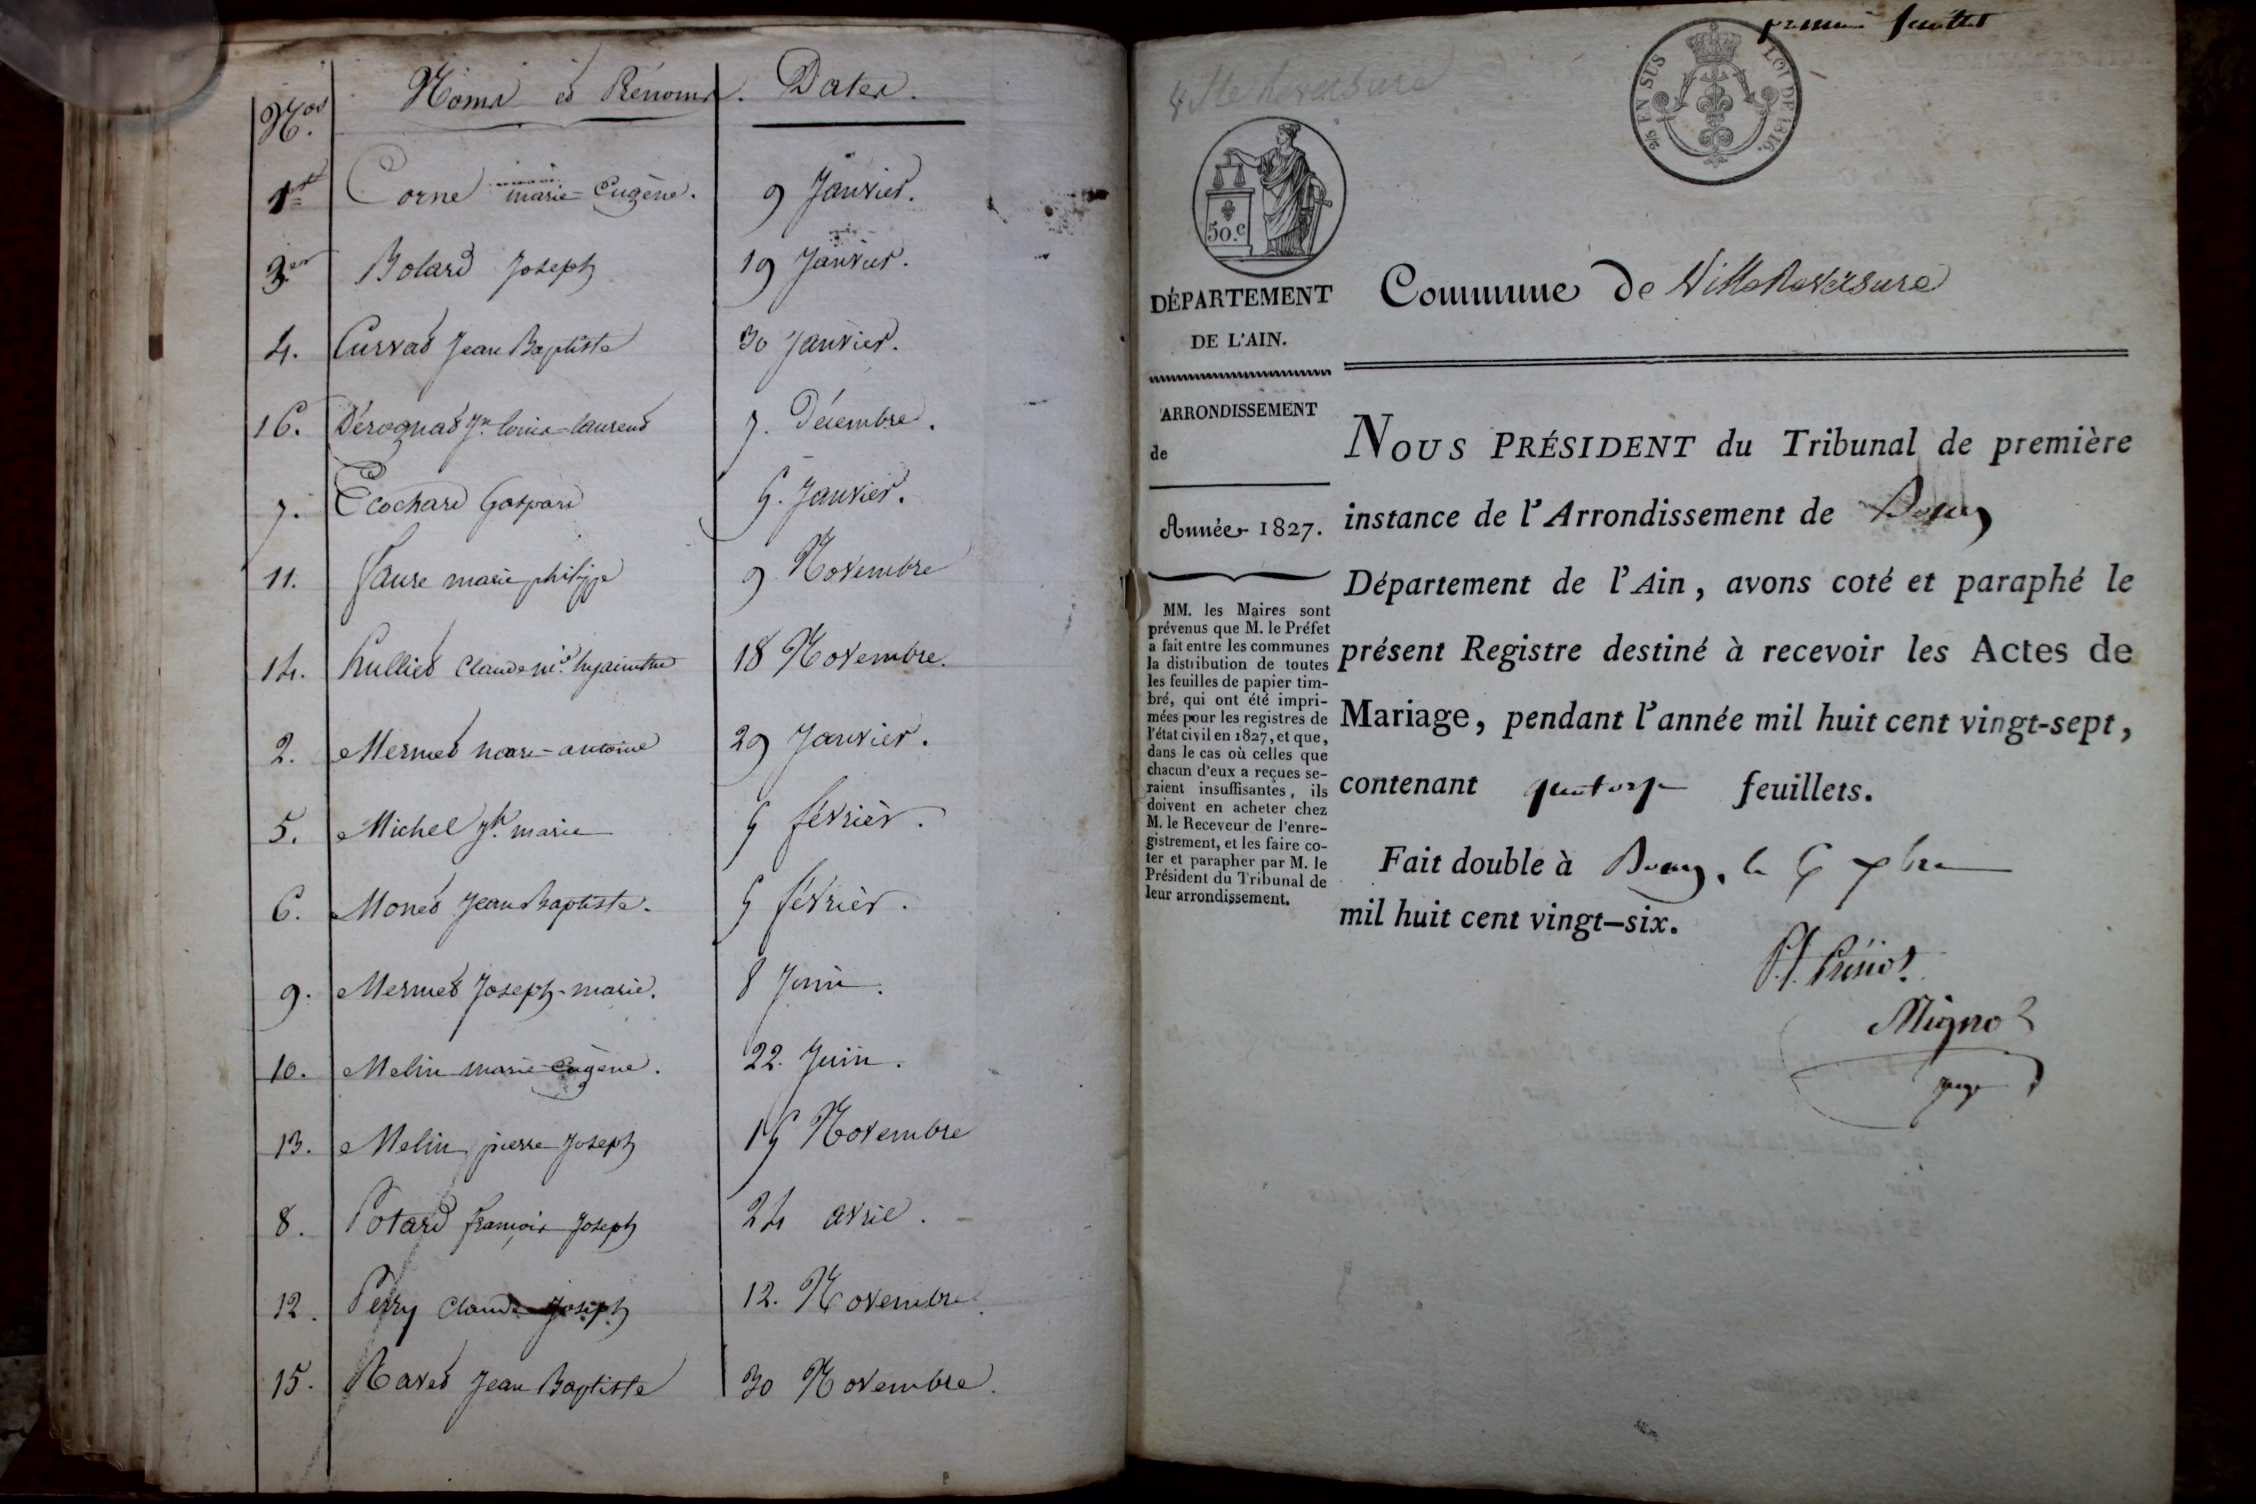 Nos Noms et Rénoms. Dates.
1er Corne marie Eugène. 9 Janvier.
3er Bolard Joseph 19 Janvier.
4. Curvat Jean Baptiste 30 Janvier.
16. Dérognat Jn louis laurend 7. Décembre.
7. Ecochard Gaspard 5. Janvier.
11. faure marie philippe 9 Novembre
14. hulliet Claude hyacinthe 18 Novembre.
2. Mermet marc-antoine 29 Janvier.
5. Michel Jh marie 5 février.
6. Monet Jean Baptiste. 5 février.
9. Mermet Joseph-marie. 8 Juin.
10. Melin marie Eugène. 22. Juin.
13. Melin pierre Joseph 15 Novembre
8. Potard françois Joseph 24 avril.
12. Perry Claude Joseph 12. Novembre.
15. Ravet Jean Baptiste 30 Novembre.
premier feuillet
Villereversure
EN SUS LOI DE 1816.
50.c
DÉPARTEMENT
DE L'AIN.
ARRONDISSEMENT
de
Année 1827.
MM. les Maires sont
prévenus que M. le Préfet
a fait entre les communes
la distribution de toutes
les feuilles de papier tim-
bré, qui ont été impri-
mées pour les registres de
l'état civil en 1827, et que,
dans le cas où celles que
chacun d'eux a reçues se-
raient insuffisantes, ils
doivent en acheter chez
M. le Receveur de l'enre-
gistrement, et les faire co-
ter et parapher par M. le
Président du Tribunal de
leur arrondissement.
Commune de Villereversure
NOUS PRÉSIDENT du Tribunal de première
instance de l'Arrondissement de Bourg
Département de l'Ain, avons coté et paraphé le
présent Registre destiné à recevoir les Actes de
Mariage, pendant l'année mil huit cent vingt-sept,
contenant quatorze feuillets.
Fait double à Bourg, le 5 xbre
mil huit cent vingt-six.
Mignot
juge